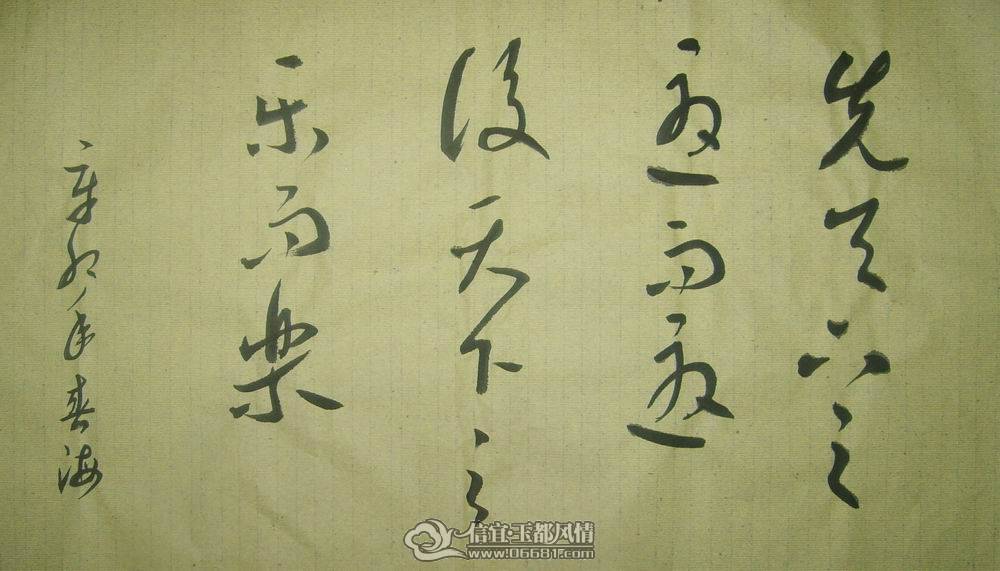 先天下之
憂而憂
後天下之
乐而樂
辛卯年春海
信宜·玉都风情
www.06681.com